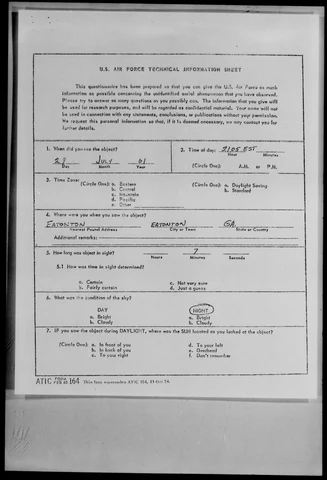 U.S. AIR FORCE TECHNICAL INFORMATION SHEET
This questionnaire has been prepared so that you can give the U.S. Air Force as much
information as possible concerning the unidentified aerial phenomenon that you have observed.
Please try to answer as many questions as you possibly can. The information that you give will
be used for research purposes, and will be regarded as confidential material. Your name will not
be used in connection with any statements, conclusions, or publications without your permission.
We request this personal information so that, if it is deemed necessary, we may contact you for
further details.
1. When did you see the object?
July 61
Day Month Year
2. Time of day: 2105 EST
Hour Minutes
(Circle One): A.M. or P.M.
3. Time Zone:
(Circle One): a. Eastern
b. Central
c. Mountain
d. Pacific
e. Other
(Circle One): a. Daylight Saving
b. Standard
4. Where were you when you saw the object?
EATONTON EATONTON GA.
Nearest Postal Address City or Town State or Country
Additional remarks:
5. How long was object in sight? 7
Hours Minutes Seconds
5.1 How was time in sight determined?
a. Certain c. Not very sure
b. Fairly certain d. Just a guess
6. What was the condition of the sky?
DAY NIGHT
a. Bright a. Bright
b. Cloudy b. Cloudy
7. IF you saw the object during DAYLIGHT, where was the SUN located as you looked at the object?
(Circle One): a. In front of you d. To your left
b. In back of you e. Overhead
c. To your right f. Don't remember
ATIC FORM 164 This form supersedes ATIC 164,